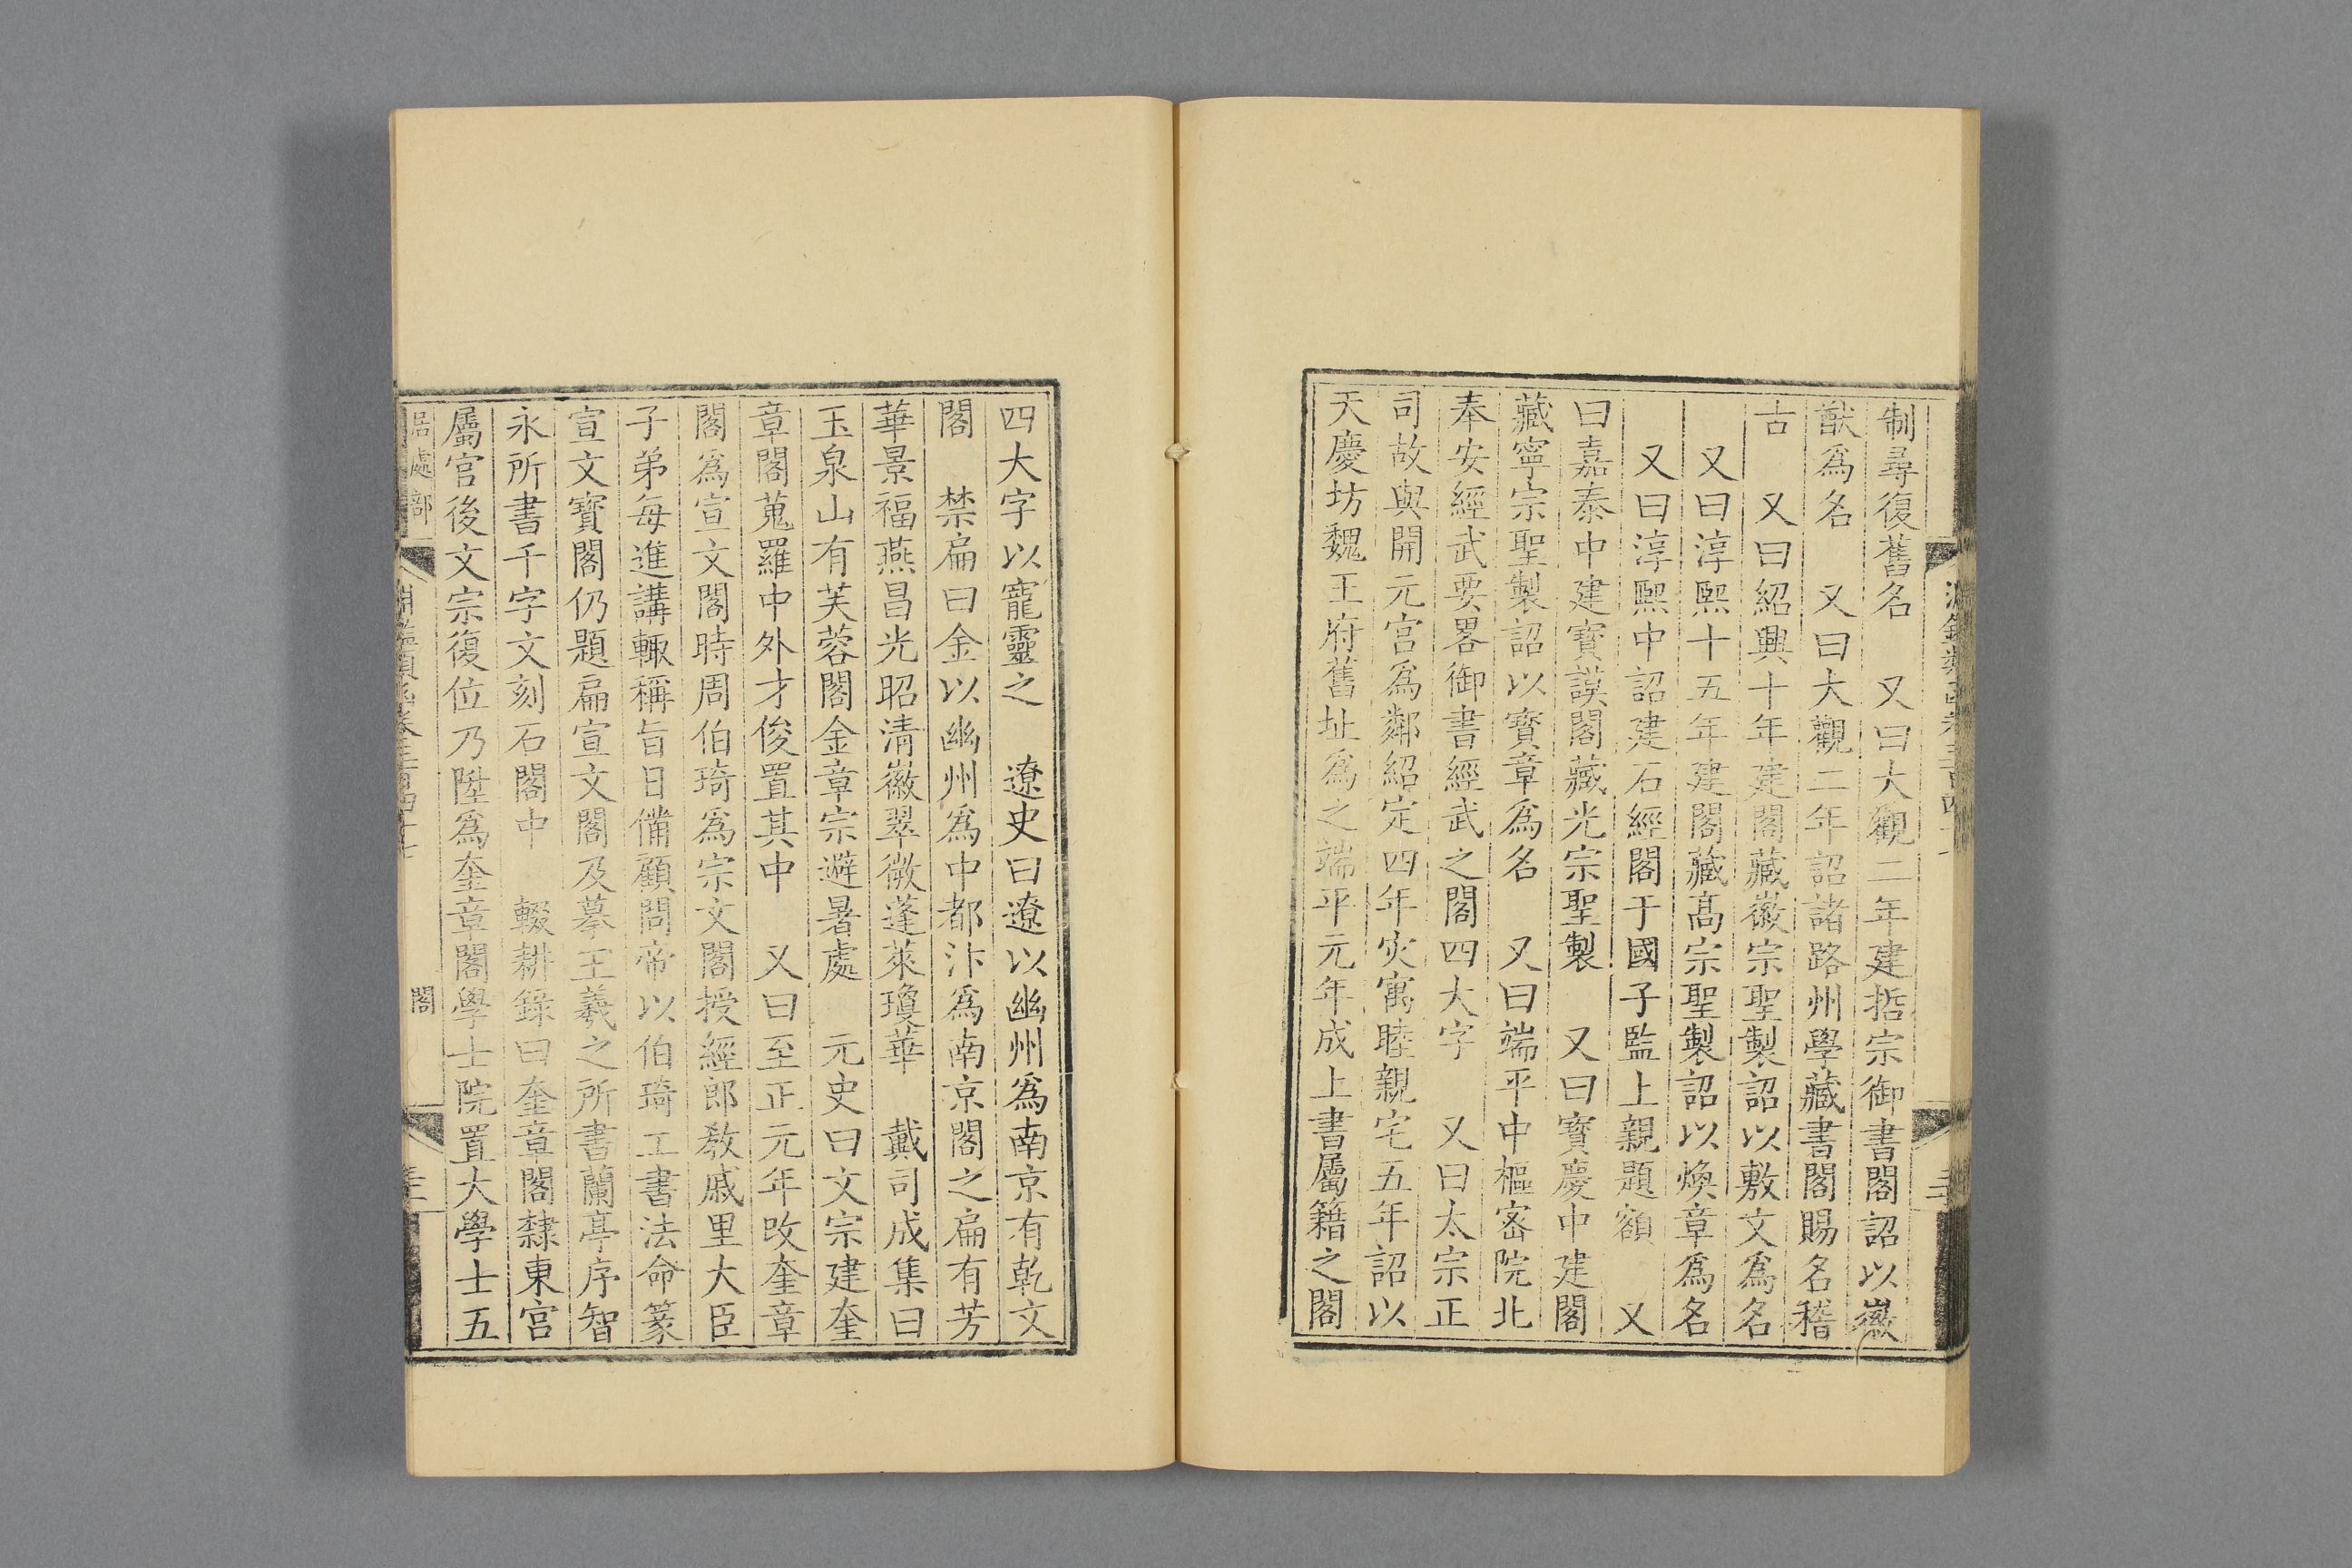 制尋復舊名　又曰大觀二年建哲宗御書閣詔以徽
猷爲名　又曰大觀二年詔諸路州學藏書閣賜名稽
古　又曰紹興十年建閣藏徽宗聖製詔以敷文爲名
又曰淳熙十五年建閣藏高宗聖製詔以煥章爲名
又曰淳熙中詔建石經閣于國子監上親題額　又
曰嘉泰中建寳謨閣藏光宗聖製　又曰寳慶中建閣
藏寧宗聖製詔以寳章爲名　又曰端平中樞宻院北
奉安經武要畧御書經武之閣四大字　又曰太宗正
司故與開元宫爲鄰紹定四年灾寓睦親宅五年詔以
天慶坊魏王府舊址爲之端平元年成上書屬籍之閣
四大字以寵靈之　遼史曰遼以幽州爲南京有乾文
閣　禁扁曰金以幽州爲中都汴爲南京閣之扁有芳
華景福燕昌光昭清徽翠微蓬萊瓊華　戴司成集曰
玉泉山有芙蓉閣金章宗避暑處　元史曰文宗建奎
章閣蒐羅中外才俊置其中　又曰至正元年改奎章
閣爲宣文閣時周伯琦爲宗文閣授經郎教戚里大臣
子弟每進講輙稱旨日備顧問帝以伯琦工書法命篆
宣文寳閣仍題扁宣文閣及摹王羲之所書蘭亭序智
永所書千字文刻石閣中　輟耕錄曰奎章閣隸東宫
屬官後文宗復位乃陞爲奎章閣學士院置大學士五
居處部　淵鑑類函卷三百四十七　閣